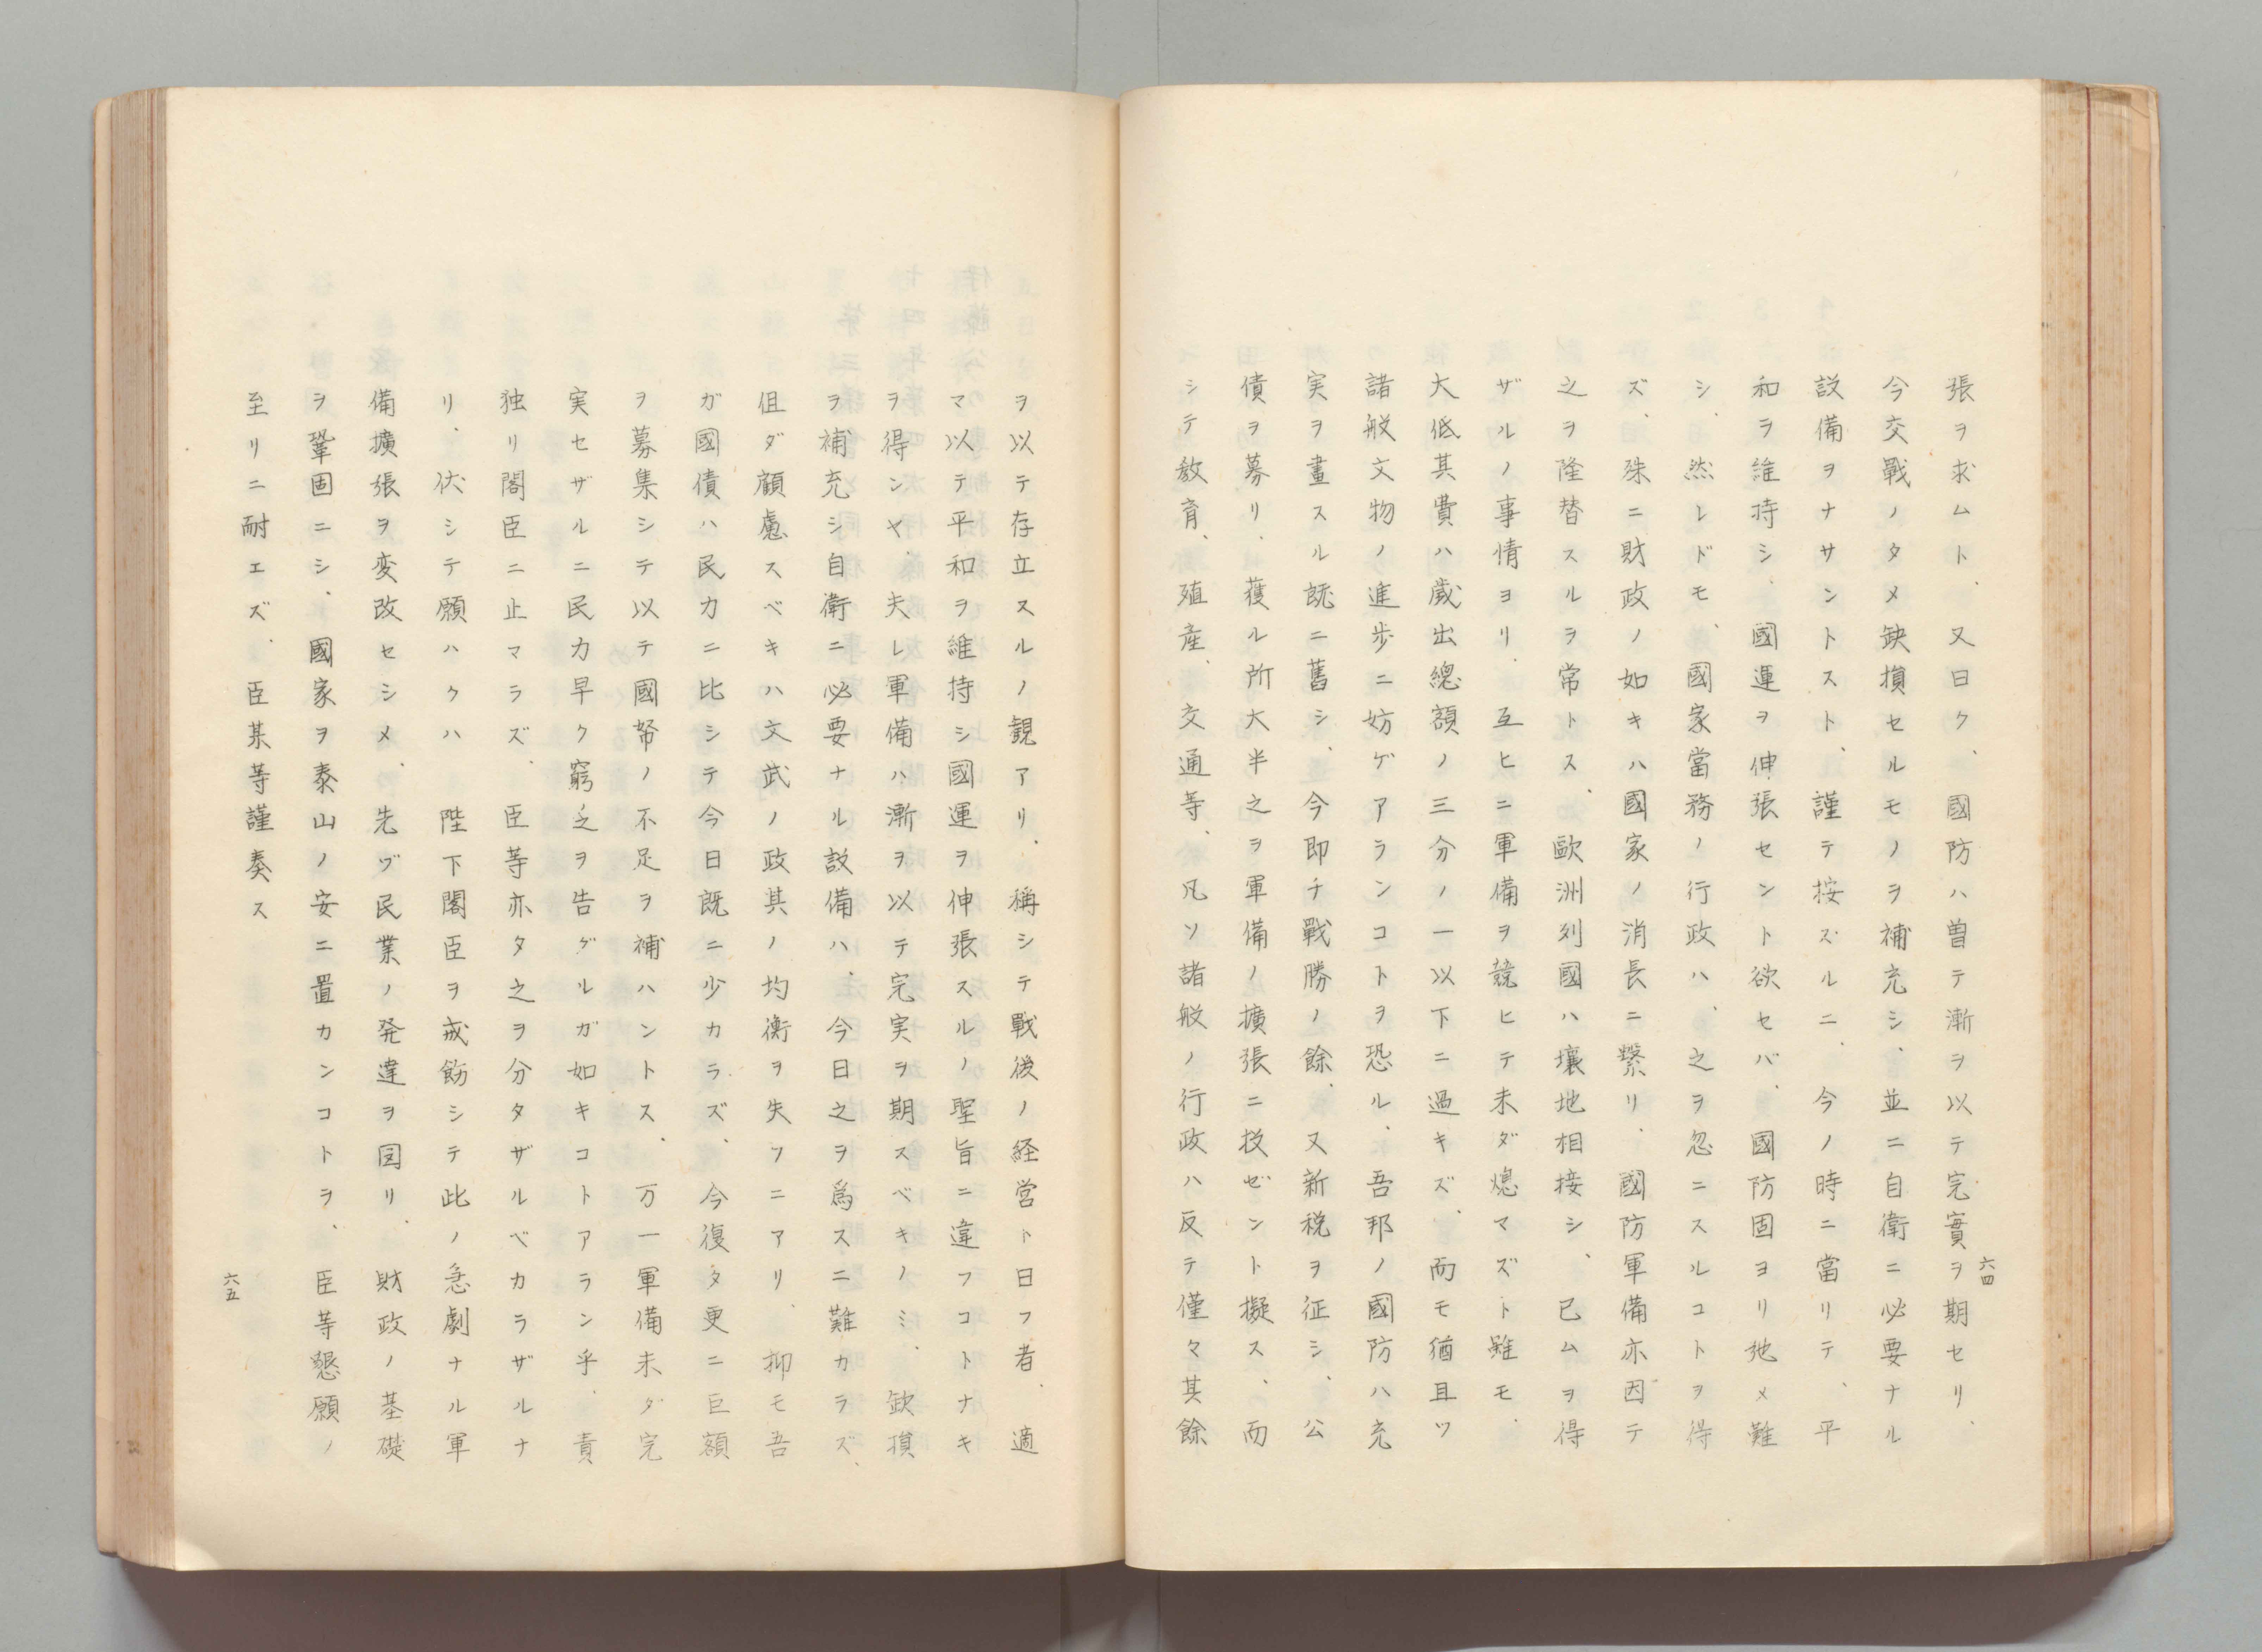 張ヲ求ムト、又曰ク、國防ハ曽テ漸ヲ以テ完實ヲ期セリ、
今交戰ノタメ缺損セルモノヲ補充シ、並ニ自衛ニ必要ナル
設備ヲナサントスト、謹テ按ズルニ、今ノ時ニ當リテ、平
和ヲ維持シ、國運ヲ伸張セント欲セバ、國防固ヨリ弛メ難
シ、然レドモ、國家當務ノ行政ハ、之ヲ忽ニスルコトヲ得
ズ、殊ニ財政ノ如キハ國家ノ消長ニ繋リ、國防軍備亦因テ
之ヲ隆替スルヲ常トス、歐洲列國ハ壤地相接シ、已ムヲ得
ザルノ事情ヨリ、互ヒニ軍備ヲ競ヒテ未ダ熄マズト雖モ、
大低其費ハ歳出總額ノ三分ノ一以下ニ過キズ、而モ猶且ツ
諸般文物ノ進歩ニ妨ゲアランコトヲ恐ル、吾邦ノ國防ハ充
実ヲ畫スル既ニ舊シ、今即チ戰勝ノ餘、又新税ヲ征シ、公
債ヲ募リ、獲ル所大半之ヲ軍備ノ擴張ニ投ゼント擬ス、而
シテ教育、殖産、交通等、凡ソ諸般ノ行政ハ反テ僅々其餘
六四
ヲ以テ存立スルノ観アリ、稱シテ戰後ノ経営ト曰フ者、適
マ以テ平和ヲ維持シ國運ヲ伸張スルノ聖旨ニ違フコトナキ
ヲ得ンヤ、夫レ軍備ハ漸ヲ以テ完実ヲ期スベキノミ、欽損
ヲ補充シ自衛ニ必要ナル設備ハ、今日之ヲ爲スニ難カラズ、
但ダ顧慮スベキハ文武ノ政其ノ均衡ヲ失フニアリ、抑モ吾
ガ國債ハ民力ニ比シテ今日既ニ少カラズ、今復タ更ニ巨額
ヲ募集シテ以テ國帑ノ不足ヲ補ハントス、万一軍備未ダ完
実セザルニ民力早ク窮乏ヲ告ゲルガ如キコトアラン乎、責
独リ閣臣ニ止マラズ、臣等亦タ之ヲ分タザルベカラザルナ
リ、伏シテ願ハクハ　陛下閣臣ヲ戒飭シテ此ノ急劇ナル軍
備擴張ヲ変改セシメ、先ヅ民業ノ発達ヲ図リ、財政ノ基礎
ヲ鞏固ニシ、國家ヲ泰山ノ安ニ置カンコトヲ、臣等懇願ノ
至リニ耐エズ、臣某等謹奏ス
六五